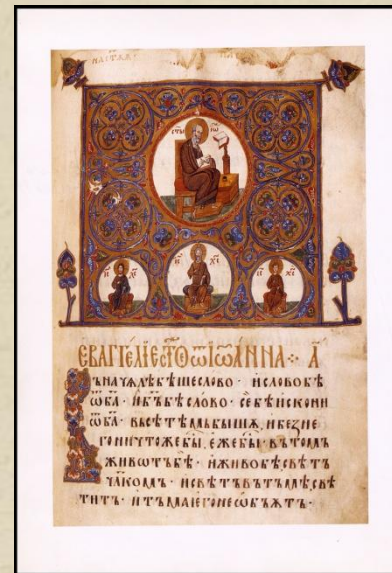 ІС ХС
ЕВАГГЕЛІЕ СТ҃О Ѿ ІѠАННА ⁘ А҃
ВЪНАЧѦЛѢБѢШЕСЛОВО · ИСЛОВОБѢ
ѾБ҃А · ИБ҃ЪБѢСЛОВО · СЕБѢИСКОНИ
ѾБ҃А · ВЬСѢТѢМЬБЫШѦ, ИБЕЗНЕ
ГОНИЧТОЖЕБЫ, ЕЖЕБЫ · ВЪТОМЪ
ЖИВѠТЪБѢ · ИЖИВОБѢСВѢТЪ
ЧЛ҃КОМЪ · ИСВѢТЪВЪТЪМѢСВѢ
ТИТЪ · ИТЪМАЕГОНЕѠБѦТЪ ·